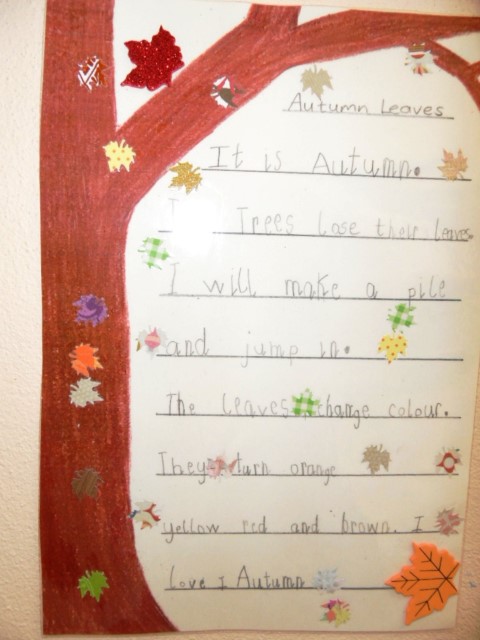 Autumn Leaves
It is Autumn.
I Trees lose their leaves.
I will make a pile
and jump in.
The leaves change colour.
They turn orange
yellow red and brown. I
Love I Autumn